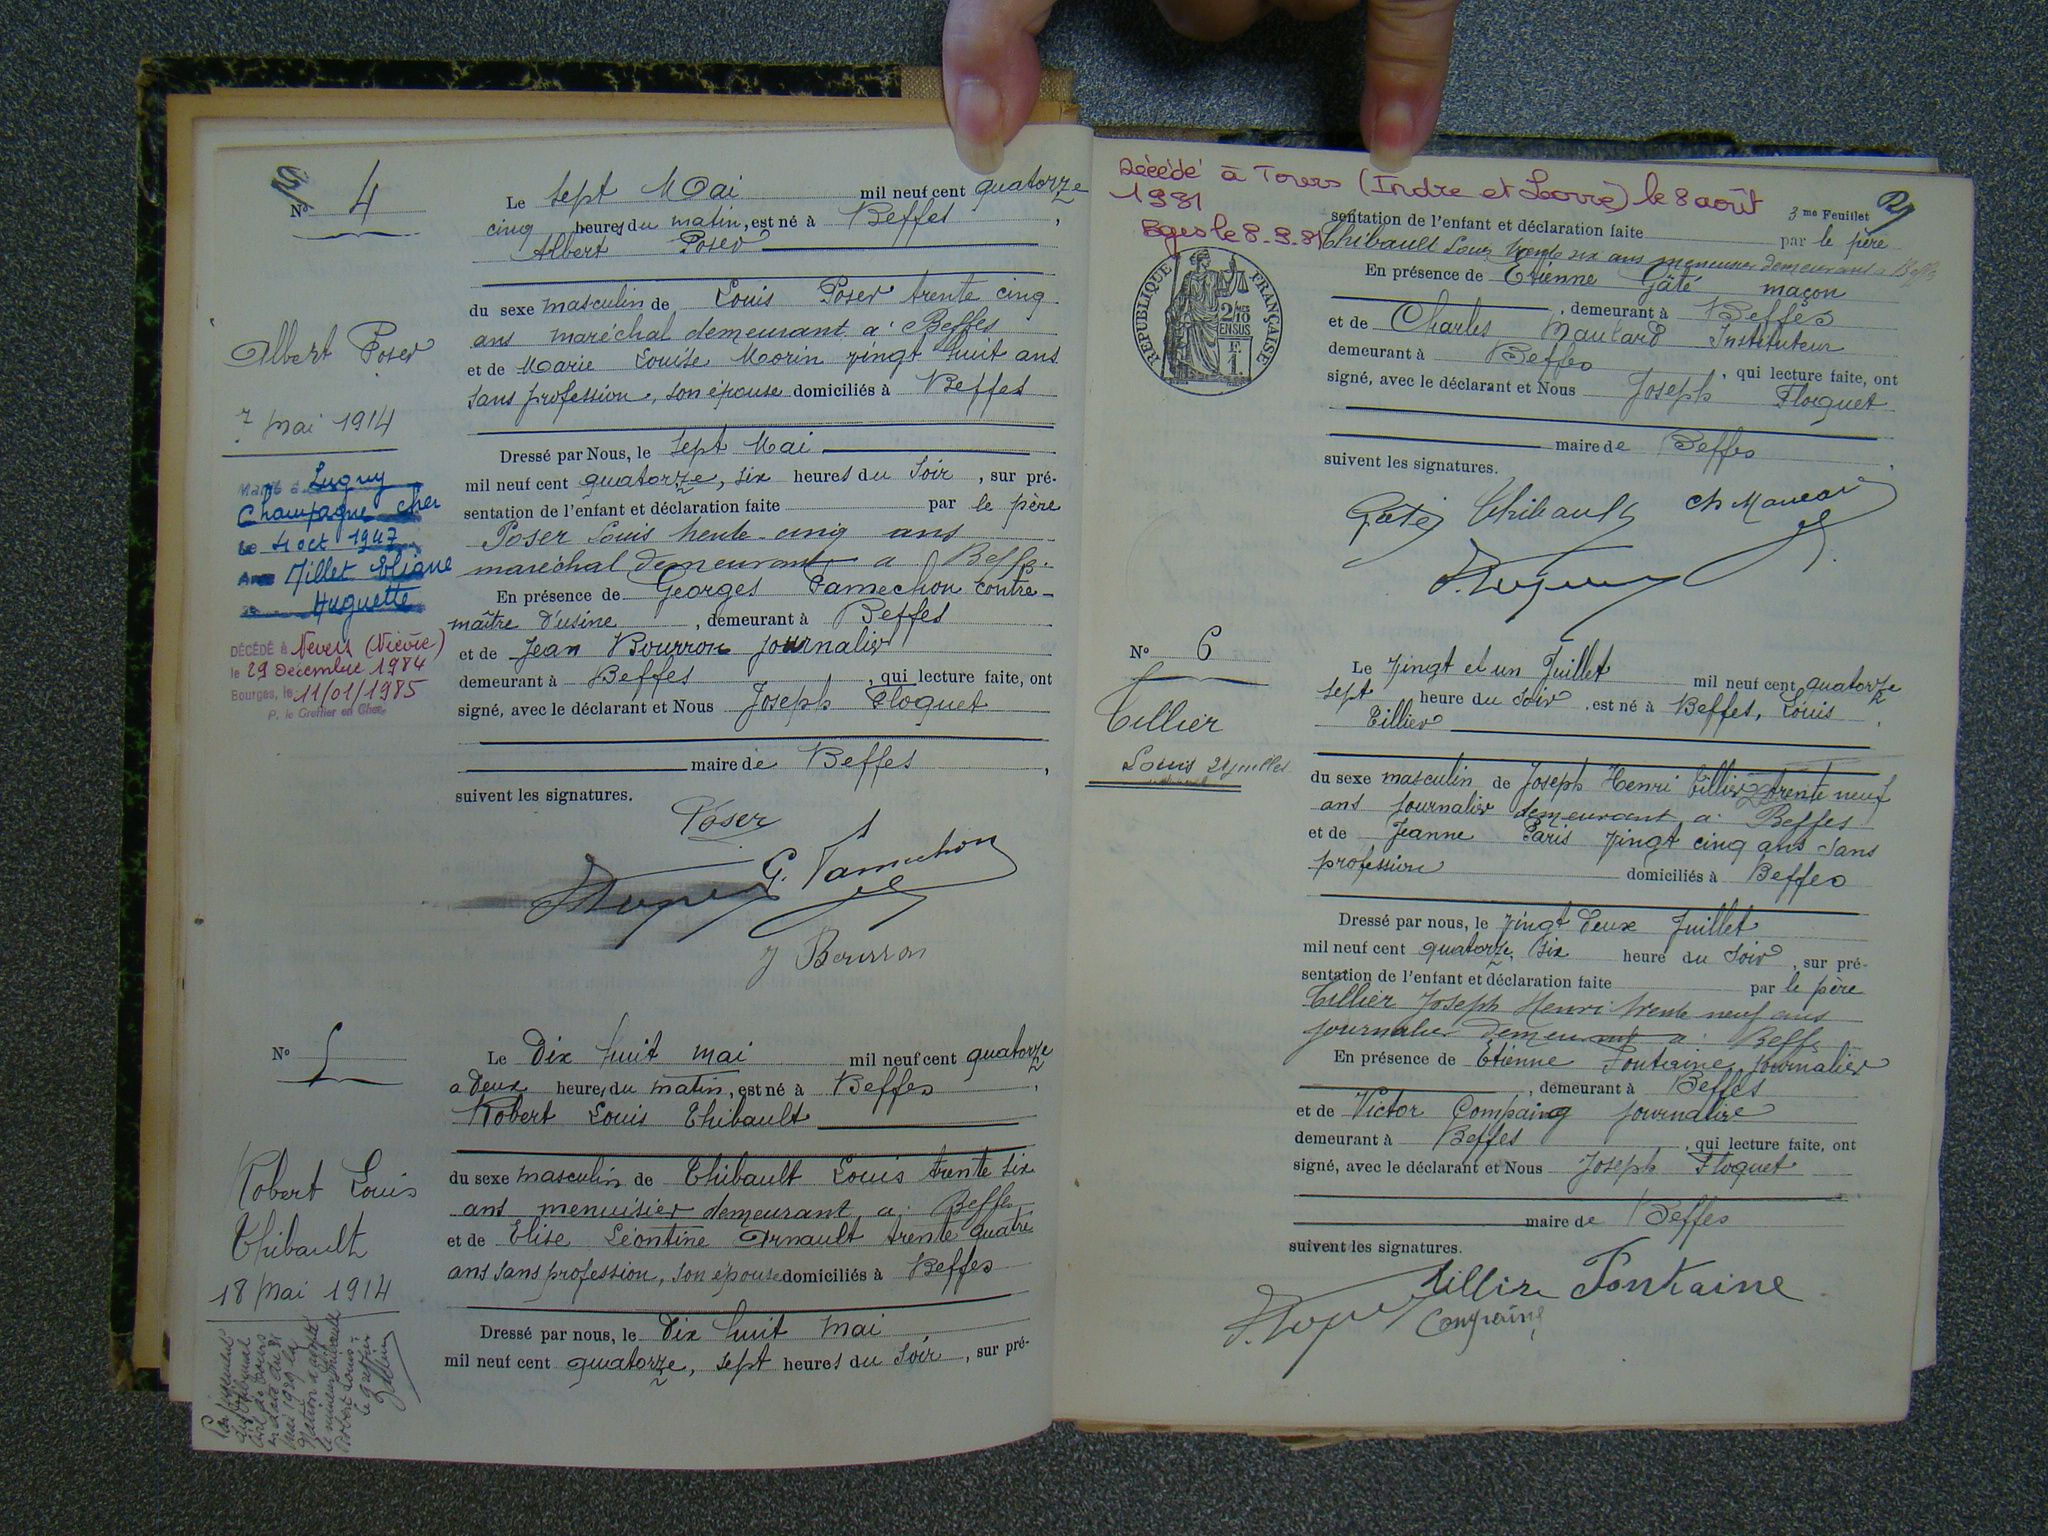 No 4
Albert Poser
7 mai 1914
Marié à Lugny
Champagne Cher
le 4 oct 1947
Avec Millet Eliane
Huguette
DÉCÉDÉ à Nevers (Nièvre)
le 29 Décembre 1984
Bourges, le 11/01/1985
P. le Greffier en Chef
Le sept Mai mil neuf cent quatorze
cinq heures du matin, est né à Beffes,
Albert Poser
du sexe masculin de Louis Poser trente cinq
ans maréchal demeurant à Beffes
et de Marie Louise Morin vingt huit ans
sans profession, son épouse domiciliés à Beffes
Dressé par Nous, le sept Mai
mil neuf cent quatorze, six heures du soir, sur pré-
sentation de l'enfant et déclaration faite par le père
Poser Louis trente cinq ans
maréchal demeurant à Beffes.
En présence de Georges Pamechon contre-
maître d'usine, demeurant à Beffes
et de Jean Bourron journalier
demeurant à Beffes, qui lecture faite, ont
signé, avec le déclarant et Nous Joseph Floquet
maire de Beffes,
suivent les signatures.
Poser
G. Pamechon
J Bourron
No 5
Robert Louis
Thibault
18 mai 1914
Par jugement
du tribunal
civil de
en date du 31
mai 1929 la
Nation a adopté
le mineur Thibault
Robert Louis
le greffier
Le Dix huit mai mil neuf cent quatorze
a deux heures du matin, est né à Beffes,
Robert Louis Thibault
du sexe masculin de Thibault Louis trente six
ans menuisier demeurant à Beffes
et de Elise Léontine Arnault trente quatre
ans sans profession, son épouse domiciliés à Beffes
Dressé par nous, le Dix huit mai
mil neuf cent quatorze, sept heures du soir, sur pré-
Décédé à Tours (Indre et Loire) le 8 août
1981
Bges le 8.9.81
3me Feuillet
RÉPUBLIQUE FRANÇAISE
2/10 EN SUS
F. 1.
sentation de l'enfant et déclaration faite par le père
Thibault Louis trente six ans menuisier demeurant à Beffes
En présence de Etienne Gâté maçon
, demeurant à Beffes
et de Charles Maulard Instituteur
demeurant à Beffes, qui lecture faite, ont
signé, avec le déclarant et Nous Joseph Floquet
maire de Beffes,
suivent les signatures.
Gâté Thibault Ch Maulard
No 6
Tillier
Louis 21 juillet
Le Vingt et un Juillet mil neuf cent quatorze
sept heure du soir, est né à Beffes, Louis
Tillier
du sexe masculin de Joseph Henri Tillier trente neuf
ans journalier demeurant à Beffes
et de Jeanne Paris vingt cinq ans sans
profession domiciliés à Beffes
Dressé par nous, le vingt deux Juillet
mil neuf cent quatorze, six heure du soir, sur pré-
sentation de l'enfant et déclaration faite par le père
Tillier Joseph Henri trente neuf ans
journalier demeurant à Beffes
En présence de Etienne Fontaine journalier
, demeurant à Beffes
et de Victor Compaing journalier
demeurant à Beffes, qui lecture faite, ont
signé, avec le déclarant et Nous Joseph Floquet
maire de Beffes
suivent les signatures.
Tillier Fontaine
Compaing